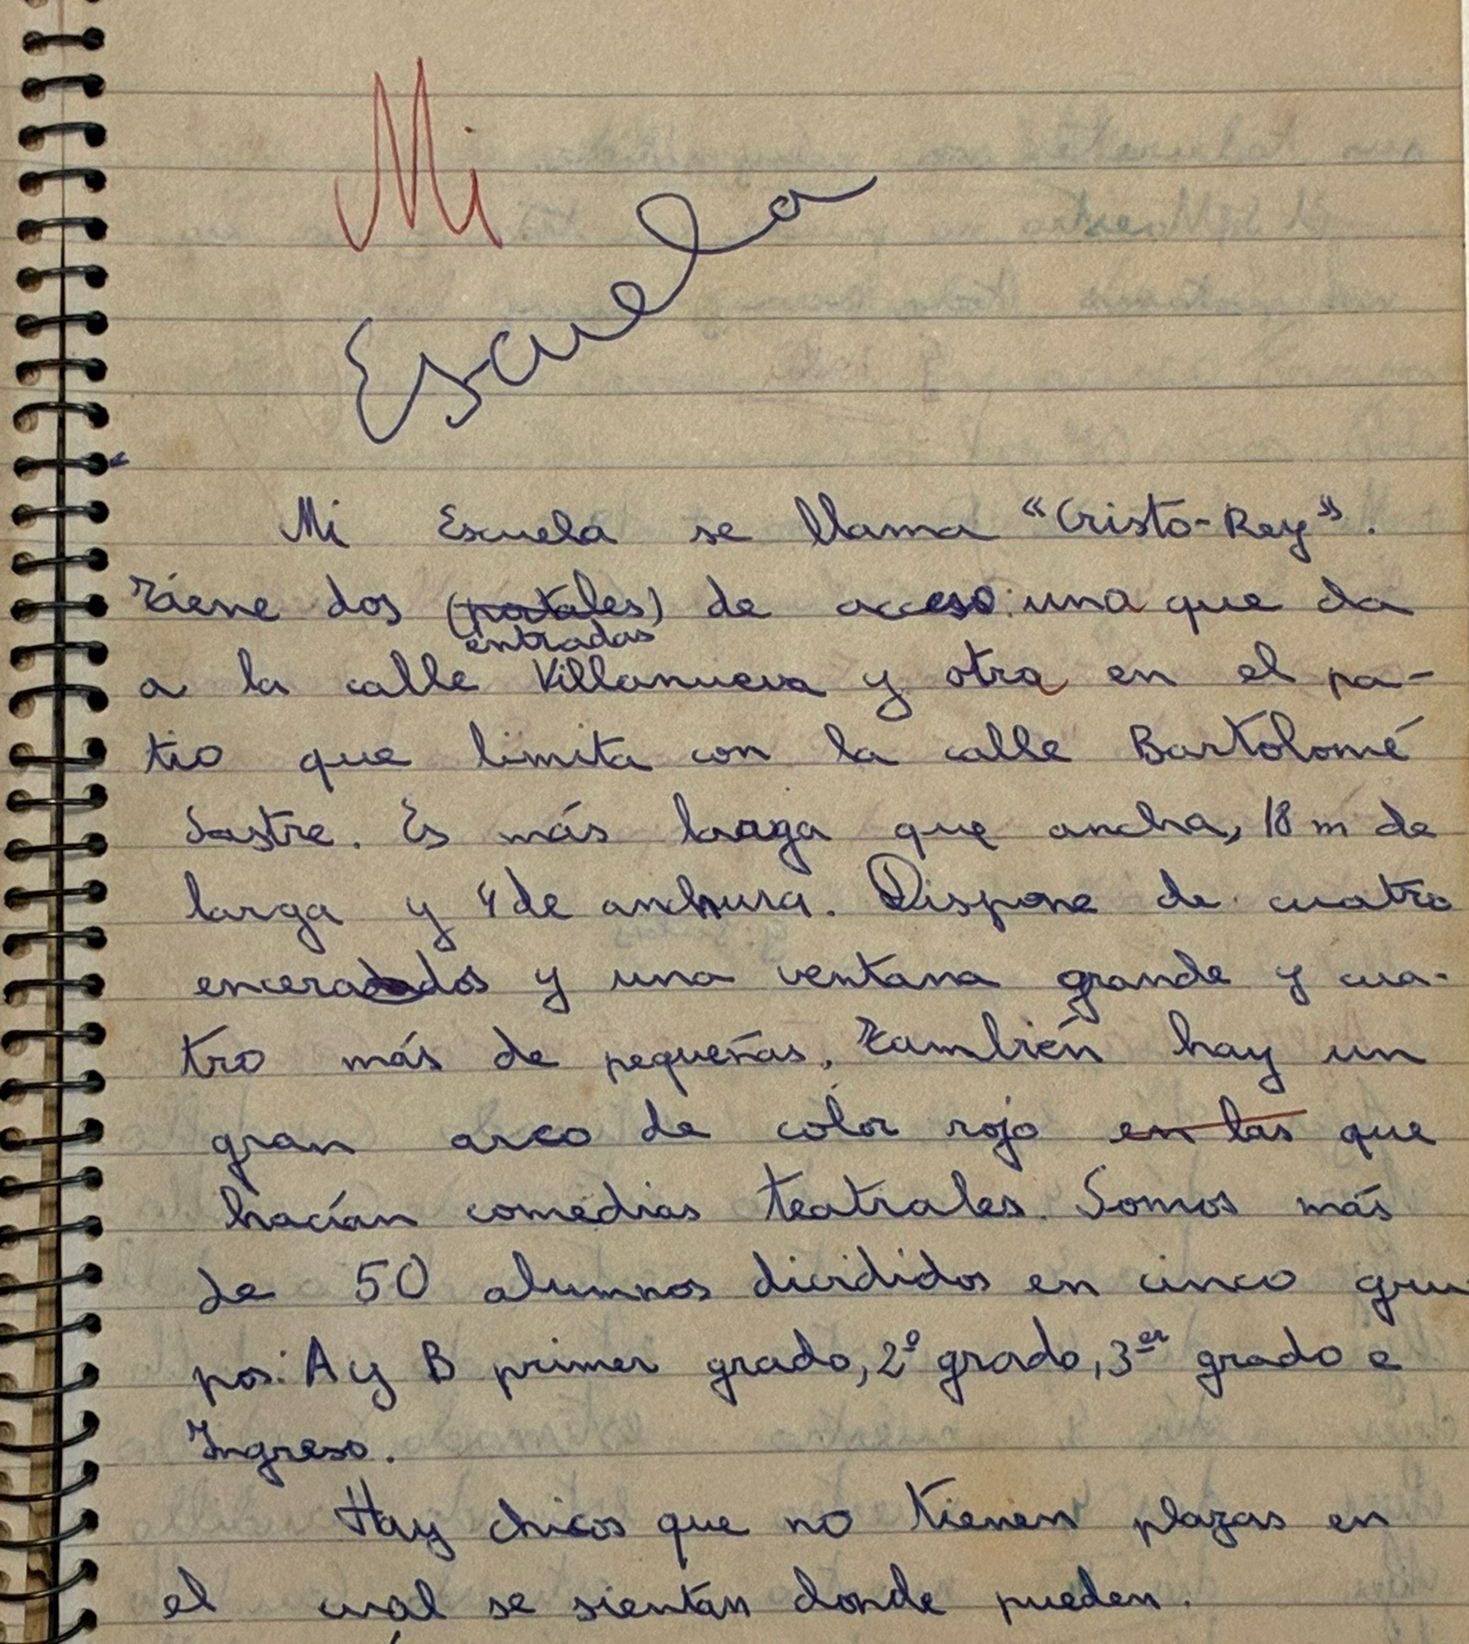 Mi
Escuela
Mi Escuela se llama "Cristo-Rey".
Tiene dos (portales) de acceso: una que da
entradas
a la calle Villanueva y otra en el pa-
tio que limita con la calle Bartolomé
Sastre. Es más larga que ancha, 18 m de
larga y 4 de anchura. Dispone de cuatro
encerados y una ventana grande y cua-
tro más de pequeñas. También hay un
gran arco de color rojo en las que
hacían comedias teatrales. Somos más
de 50 alumnos divididos en cinco gru
pos: A y B primer grado, 2º grado, 3er grado e
Ingreso.
Hay chicos que no tienen plazas en
el cual se sientan donde pueden.